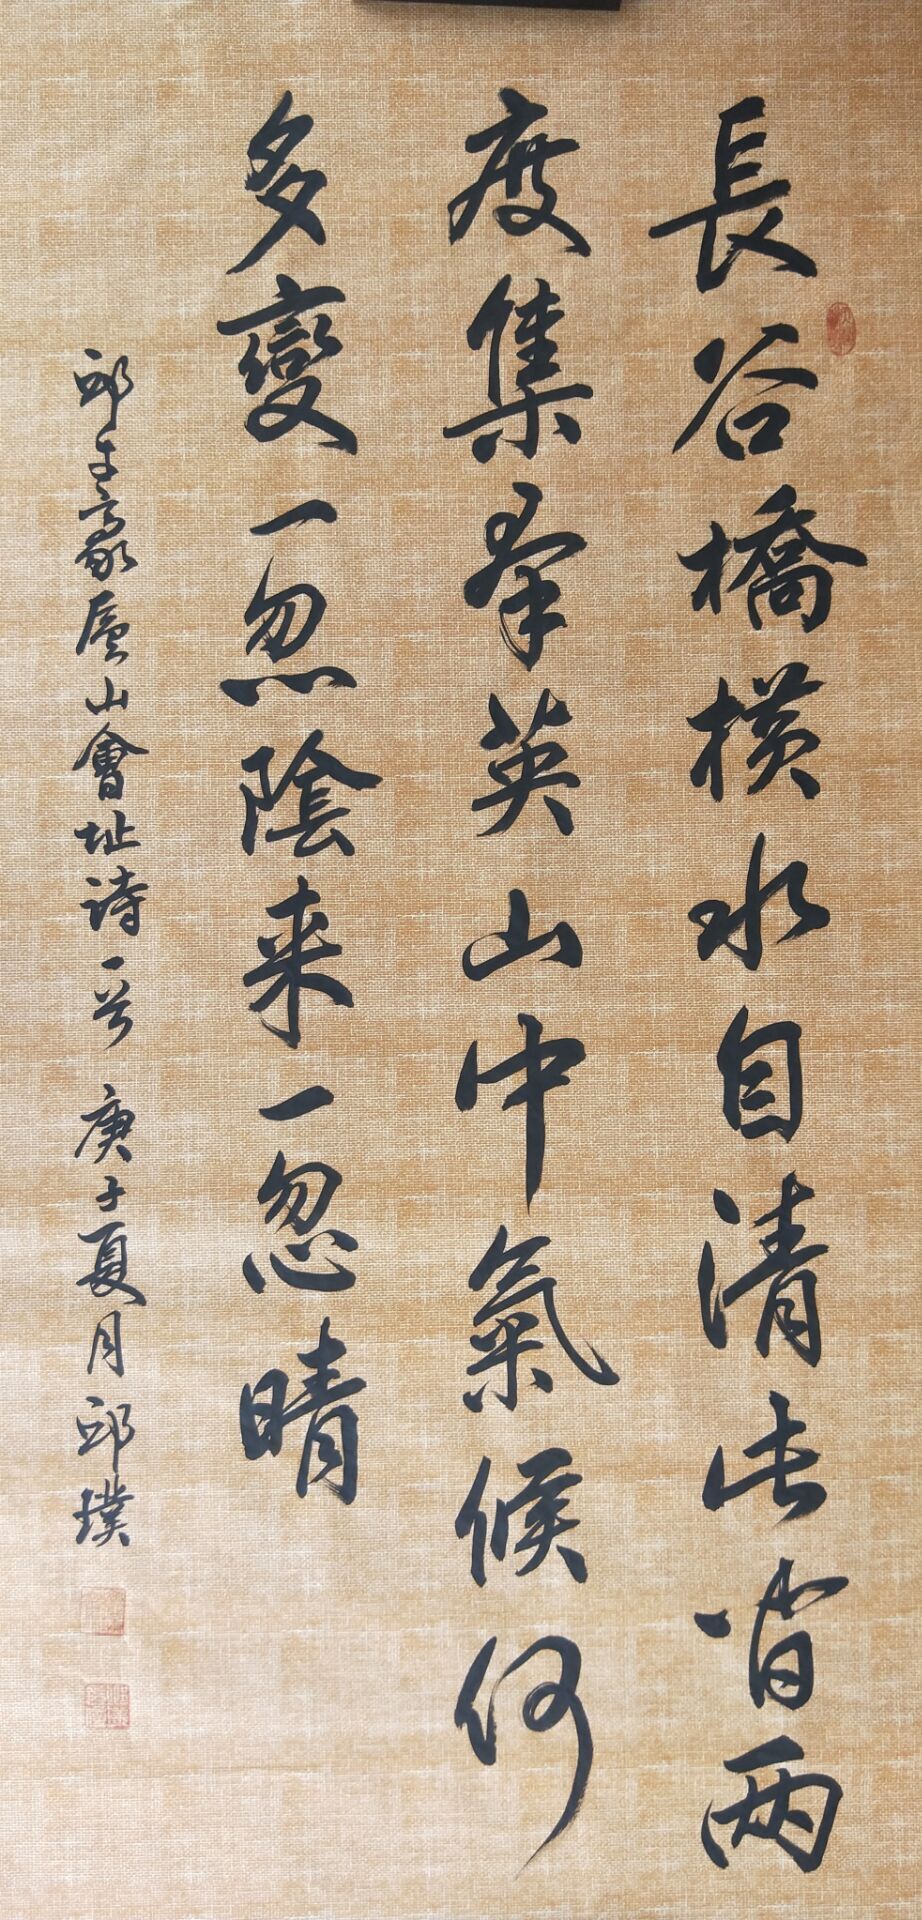 長谷橋横水自清此间两
度集羣英山中氣候何
多變一忽陰来一忽晴
豪廬山會址詩一首 庚子夏月邱璞